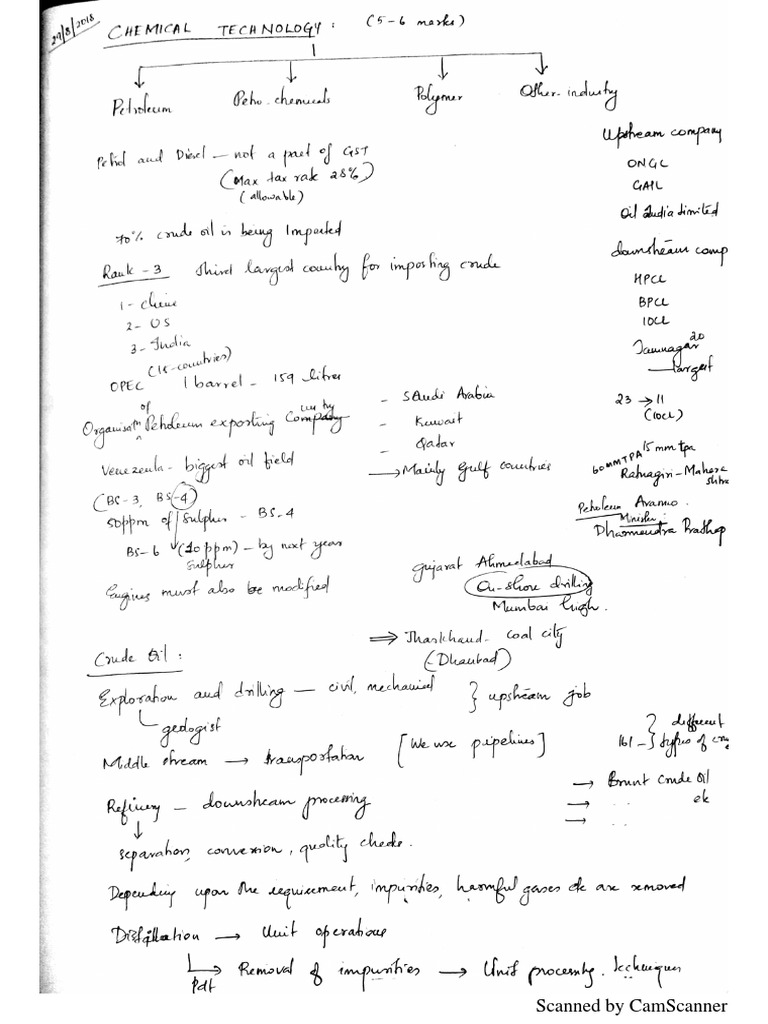 29/8/2018
CHEMICAL TECHNOLOGY: (5-6 marks)
Petroleum Petro-chemicals Polymer Other-industry
Petrol and Diesel - not a part of GST
(Max tax rate 28%)
(allowable)
70% crude oil is being Imported
Rank - 3 Third largest country for importing crude
1 - China
2 - US
3 - India
OPEC (14-countries) 1 barrel - 159 litres
Organisatn of Petroleum exporting Company
Venezeula - biggest oil field
(BS-3, BS-4)
50ppm of Sulphur - BS-4
BS-6 (10 ppm) - by next year
Sulphur
Engines must also be modified
- Saudi Arabia
- Kuwait
- Qatar
→ Mainly Gulf countries
Upstream company
ONGC
GAIL
Oil India Limited
downstream comp
HPCL
BPCL
IOCL
Jamnagar 20
largest
23 → 11
(IOCL)
60MMTPA 15 mm tpa
Ratnagiri - Mahara
shtra
Petroleum Aramco.
Minister
Dharmendra Pradhap
Gujarat Ahmedabad
On-shore drilling
Mumbai high.
⇒ Jharkhand - coal city
(Dhanbad)
Crude Oil:
Exploration and drilling - civil, mechanical } upstream job
geologist
Middle stream → transportation [We use pipelines]
161 - } different types of cru
Refinery - downstream processing
→ Brunt crude Oil
→ .. etc
→ ..
separation, conversion, quality checks.
Depending upon the requirement, impurities, harmful gases etc are removed
Distillation → Unit operations
Pdt → Removal of impurities → Unit processing techniques
Scanned by CamScanner